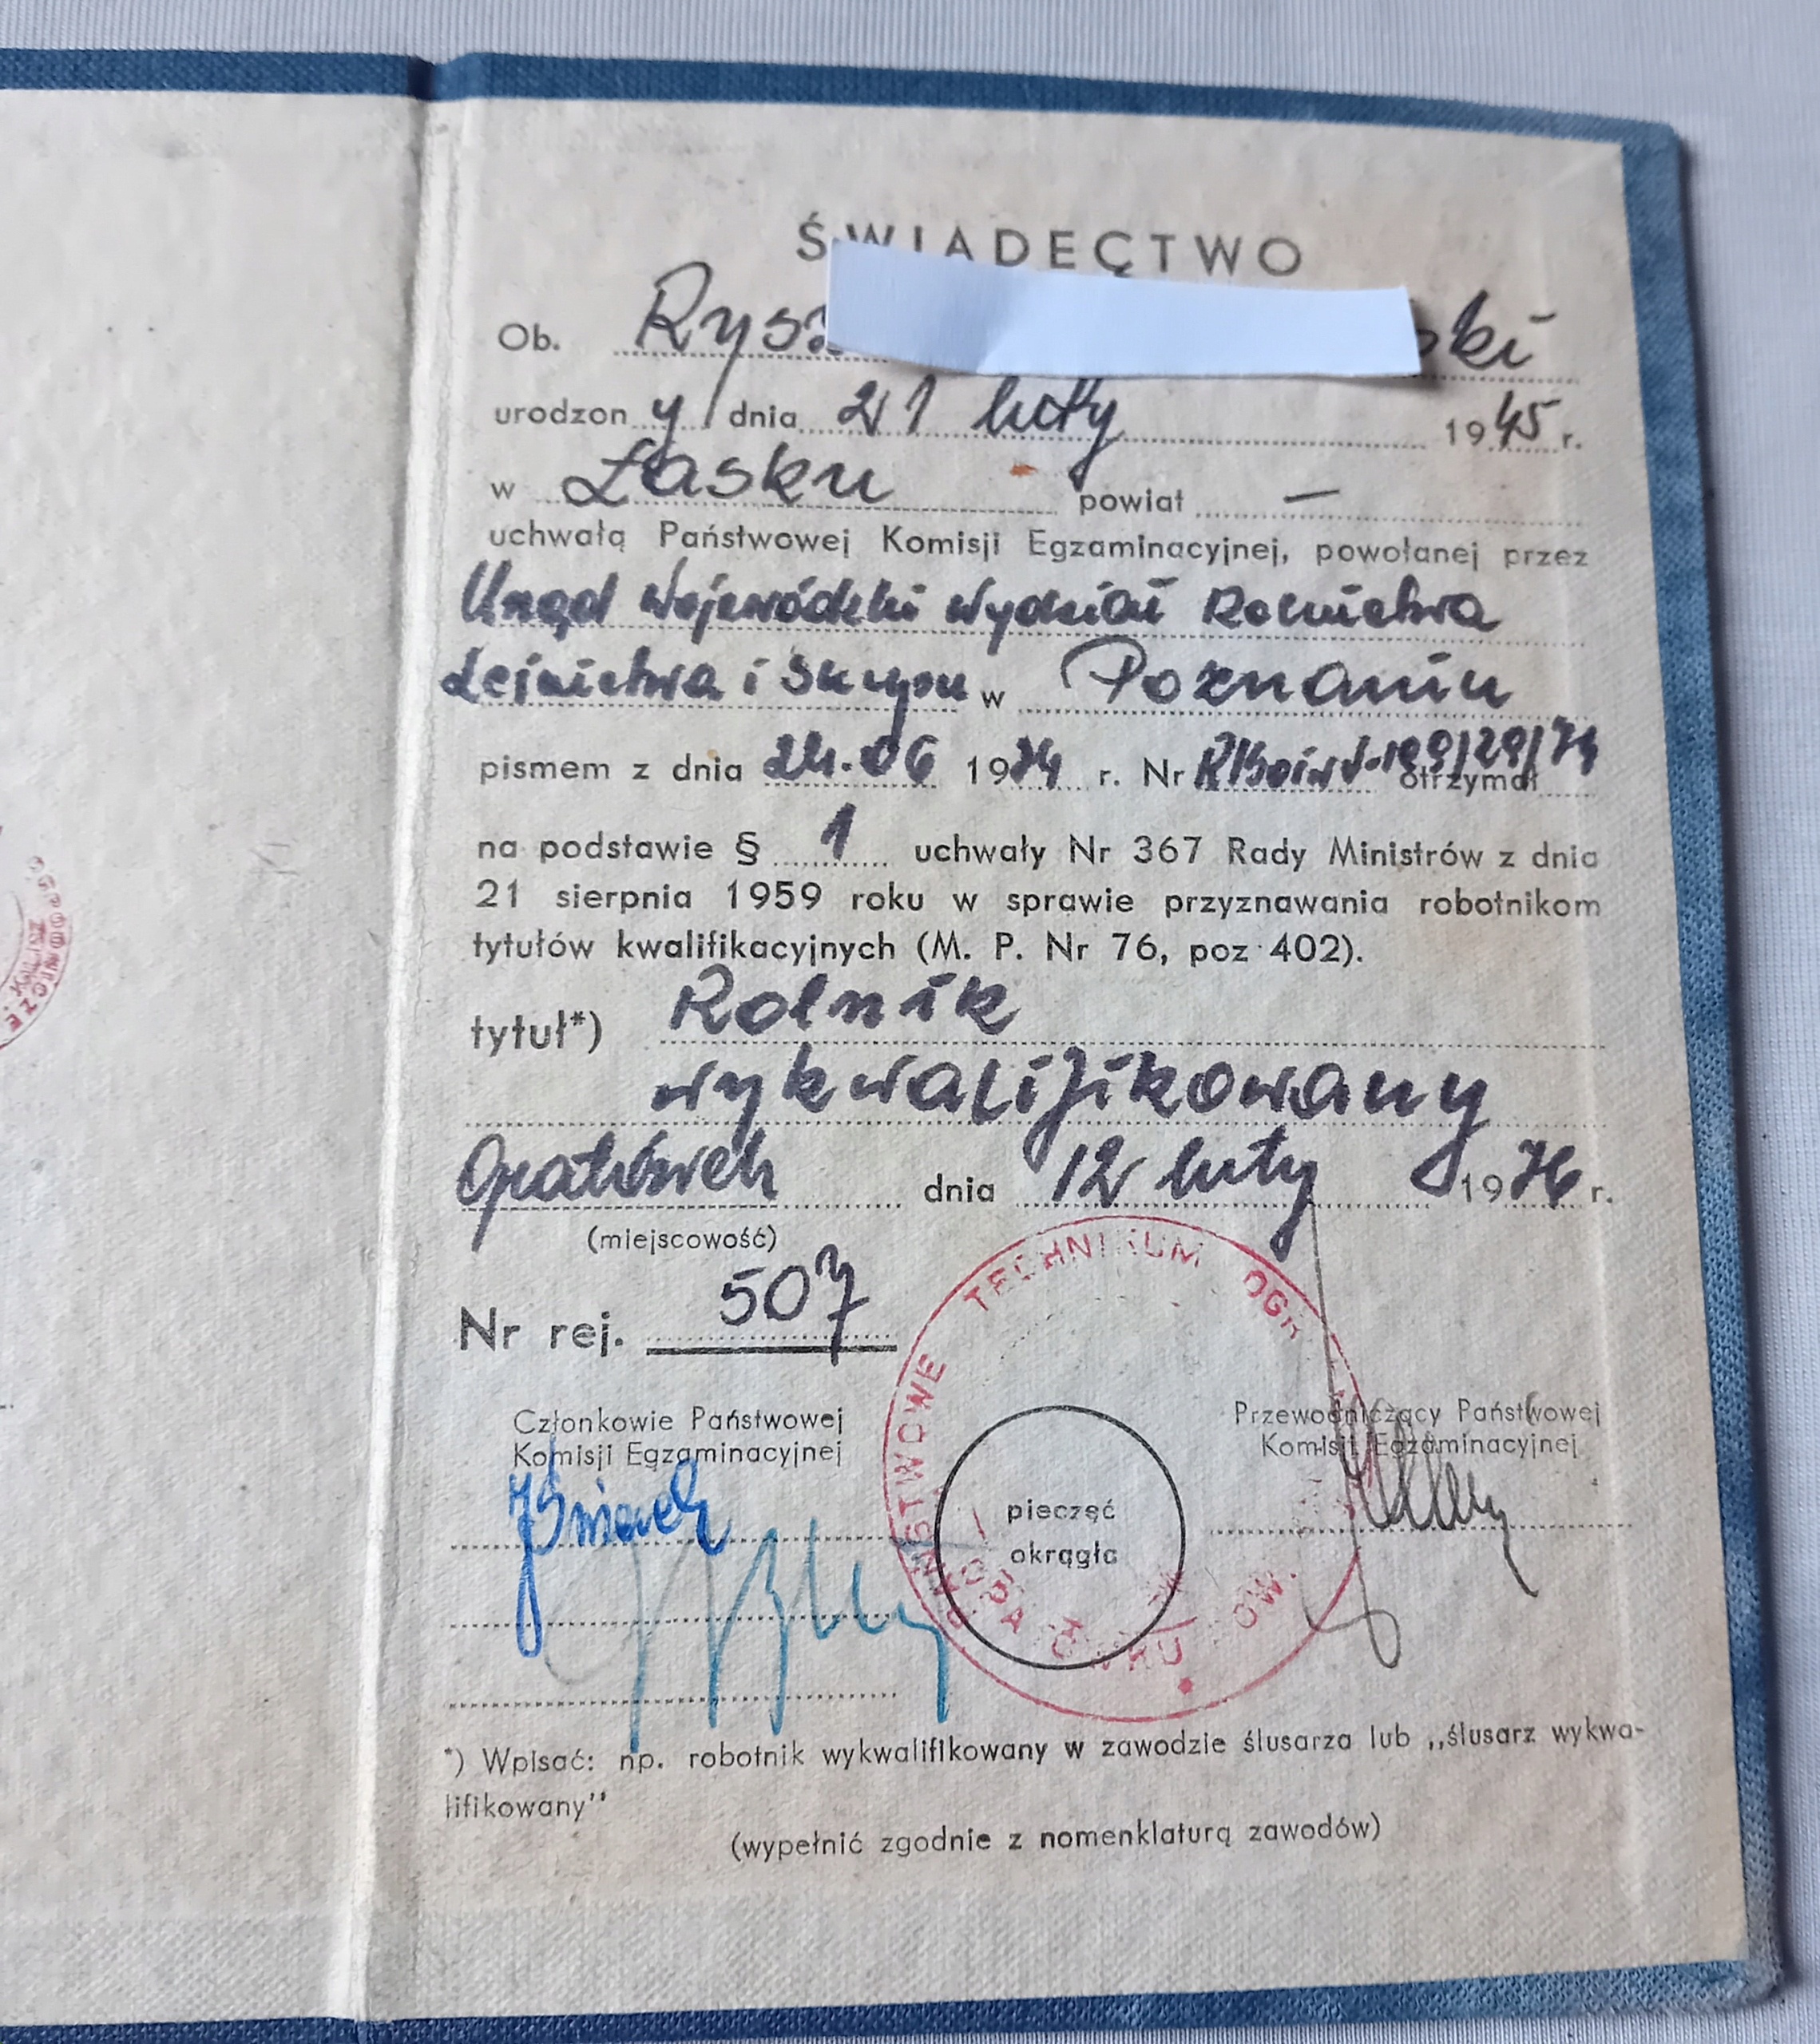 ŚWIADECTWO
Ob. Rysz ski
urodzony dnia 21 luty 1945 r.
w Łasku powiat —
uchwałą Państwowej Komisji Egzaminacyjnej, powołanej przez
Urząd Wojewódzki Wydział Rolnictwa
Leśnictwa i Skupu w Poznaniu
pismem z dnia 24.06 1974 r. Nr otrzymał
na podstawie § 1 uchwały Nr 367 Rady Ministrów z dnia
21 sierpnia 1959 roku w sprawie przyznawania robotnikom
tytułów kwalifikacyjnych (M. P. Nr 76, poz 402).
tytuł*) Rolnik
wykwalifikowany
Opatówek dnia 12 luty 1976 r.
(miejscowość)
Nr rej. 507
TECHNIKUM
Członkowie Państwowej
Komisji Egzaminacyjnej
Przewodniczący Państwowej
Komisji Egzaminacyjnej
pieczęć
okrągła
*) Wpisać: np. robotnik wykwalifikowany w zawodzie ślusarza lub ,,ślusarz wykwa-
lifikowany"
(wypełnić zgodnie z nomenklaturą zawodów)